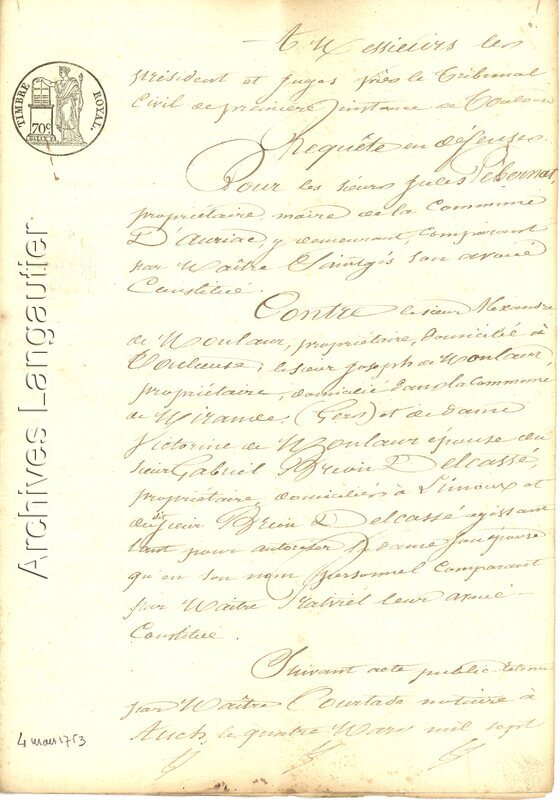 A Messieurs les
président et juges près le Tribunal
Civil de première instance de Toulouse
Requête en défenses.
Pour les sieurs Jules Pébernat
propriétaire, maire de la Commune
D'auriac, y demeurant, Comparant
par Maître Saintgés son avoué
Constitué.
Contre le sieur Alexandre
de Monlaur, propriétaire, domicilié à
Toulouse, le sieur joseph de Monlaur
propriétaire, domicilié dans la Commune
de Mirande, (Gers) et de dame
Victorine de Monlaur épouse du
sieur Gabriel Brion Delcassé,
propriétaire, domiciliés à Limoux et
dudit sieur Brion Delcassé agissant
tant pour autoriser la dame son épouse
qu'en son nom personnel Comparant
par Maître leur avoué
Constitué.
Suivant acte public retenu
par Maître Courtade notaire à
Auch, le quatre Mars mil sept
TIMBRE ROYAL.
70c
Archives Langautier
4 mars 1753